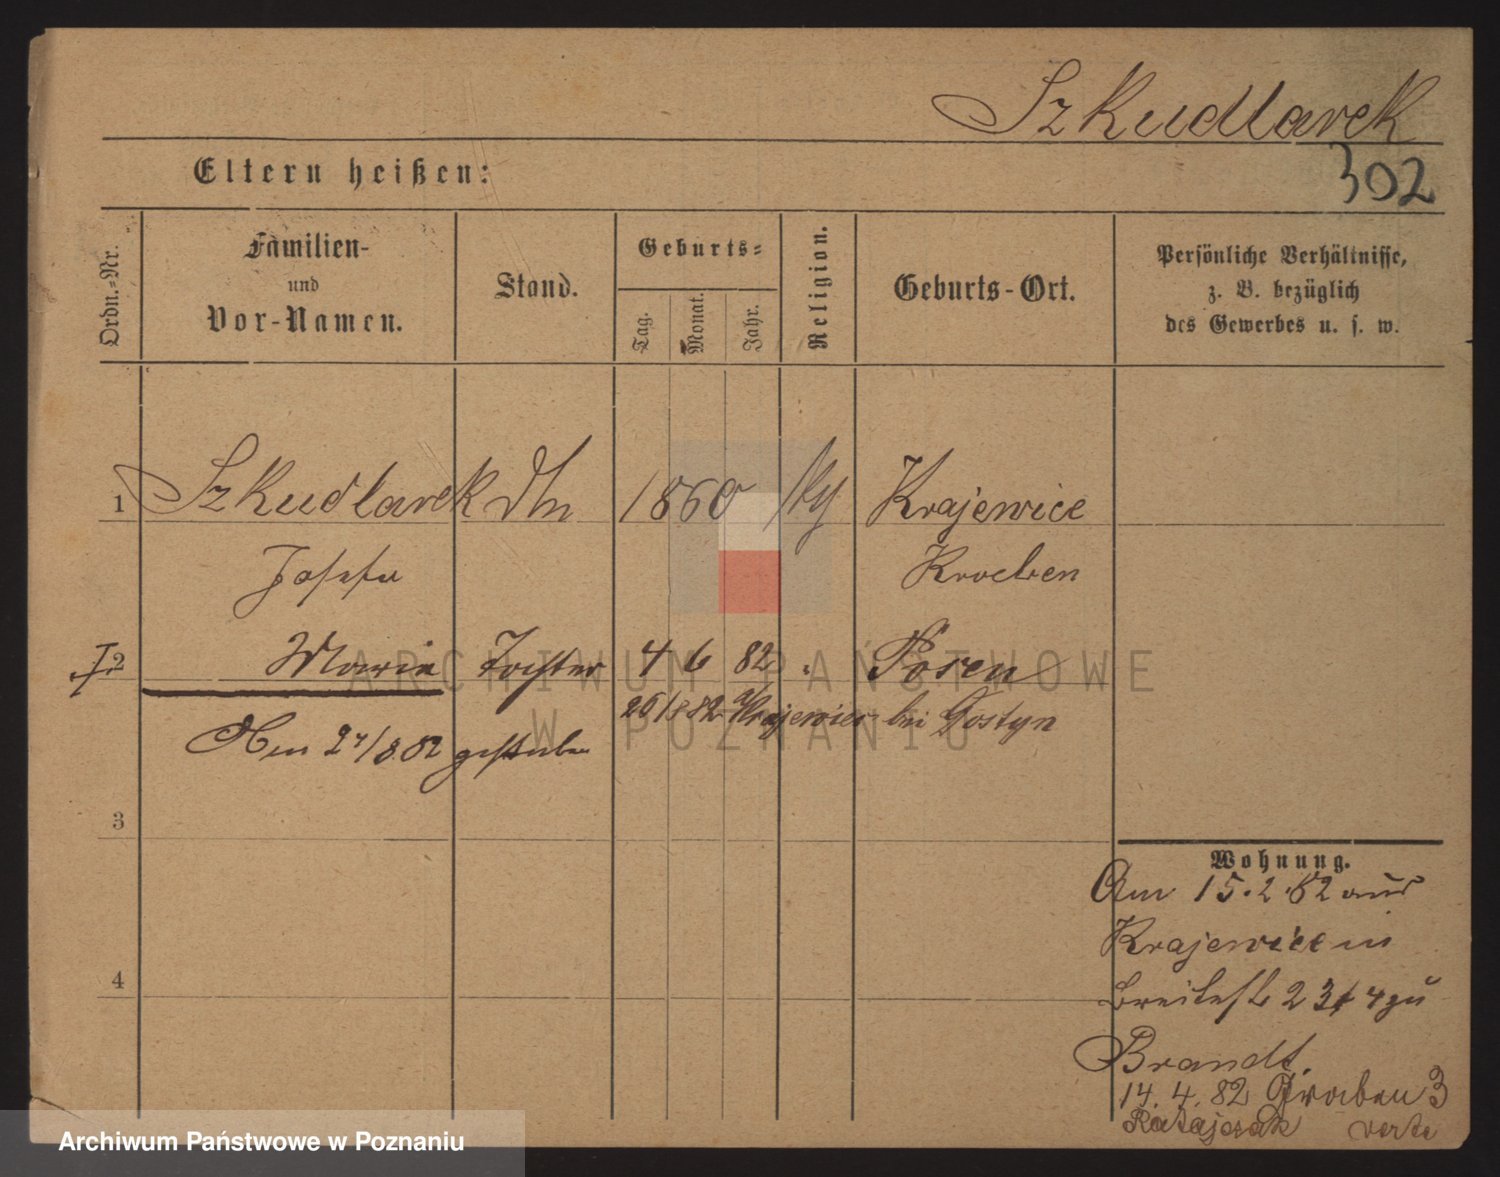 Szkudlarek
302
Eltern heißen:
Ordn.-Nr.
Familien-
und
Vor-Namen.
Stand.
Geburts-
Tag.
Monat.
Jahr.
Religion.
Geburts-Ort.
Persönliche Verhältnisse,
z. B. bezüglich
des Gewerbes u. s. w.
1 Szkudlarek 1860 Krajewice
Josefa Kroeben
2 Maria Tochter 4 6 82 Posen
26/8 82 Krajewice bei Gostyn
Am 27/8.82 gestorben
3
4
Wohnung.
Am 15.2.82 aus
Krajewice in
Breitestr 23 4 zu
Brandt.
14.4.82 Graben 3
Ratajczak verte
ARCHIWUM PAŃSTWOWE
W POZNANIU
Archiwum Państwowe w Poznaniu